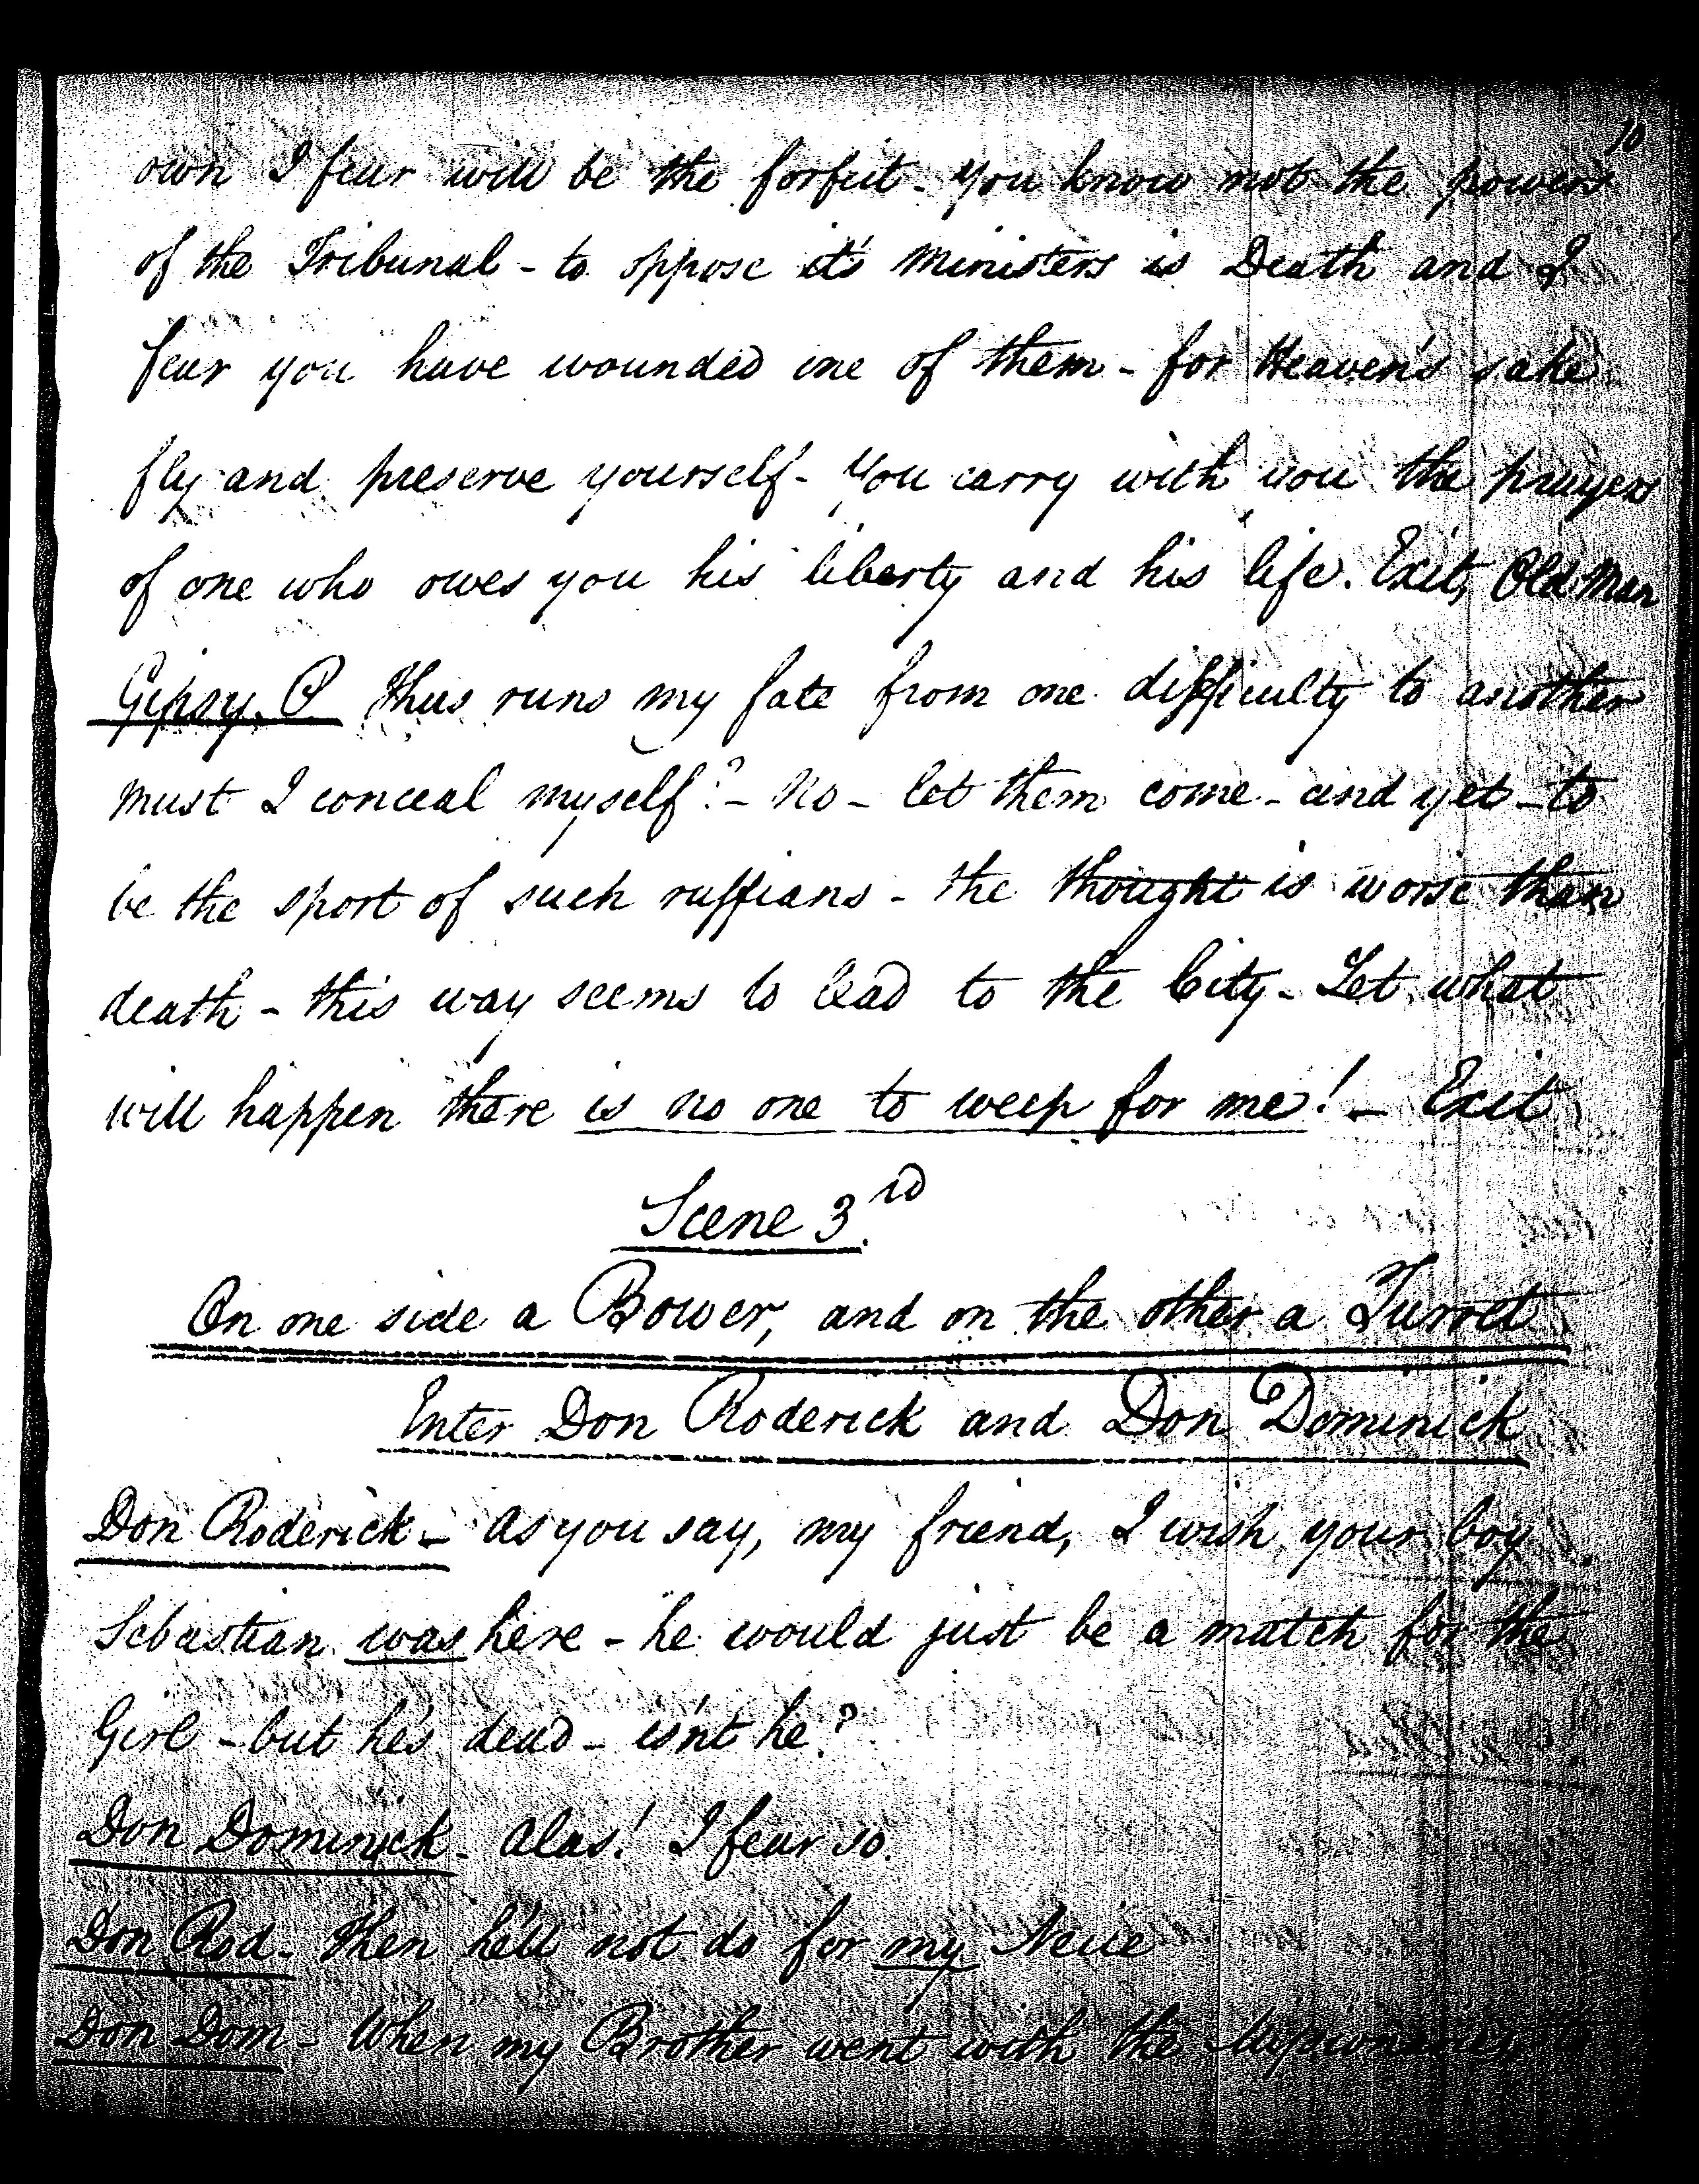 10
own I fear will be the forfeit - You know not the powers
of the Tribunal - to oppose it's Ministers is Death and I
fear you have wounded one of them - for Heaven's sake
fly and preserve yourself - You carry with you the prayers
of one who owes you his liberty and his life. Exit, Old Man
Gipsy. P. Thus runs my fate from one difficulty to another
must I conceal myself? - No - let them come - and yet - to
be the sport of such ruffians - the thought is worse than
death - this way seems to lead to the City - Let what
will happen there is no one to weep for me! - Exit
Scene 3rd.
On one side a Bower, and on the other a Turret
Enter Don Roderick and Don Dominick
Don Roderick - As you say, my friend, I wish your boy
Sebastian was here - he would just be a match for the
Girl - but he's dead - isn't he?
Don Dominick - Alas! I fear so.
Don Rod - Then he'll not do for my Neice
Don Dom - When my Brother went with the Missionaries, to